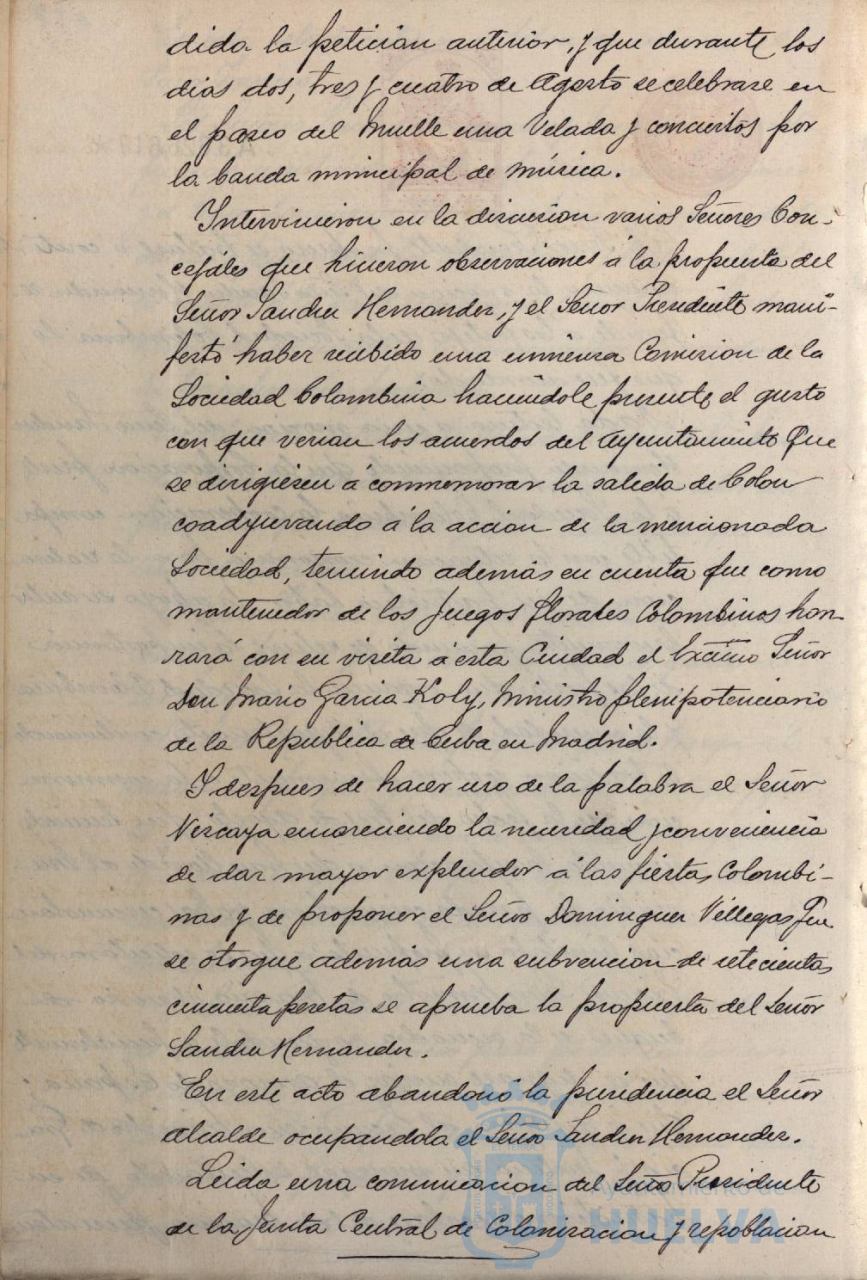 dida la peticion anterior, y que durante los
dias dos, tres y cuatro de Agosto se celebrase en
el paseo del Muelle una Velada y conciertos por
la banda municipal de música.
Intervinieron en la discusion varios Señores Con-
cejales que hicieron observaciones á la propuesta del
Señor Sanchez Hernandez, y el Señor Presidente mani-
festó haber recibido una inmensa Comision de la
Sociedad Colombina haciendole presente el gusto
con que verian los acuerdos del Ayuntamiento que
se dirigiesen á conmemorar la salida de Colon
coadyuvando á la accion de la mencionada
Sociedad, teniendo además en cuenta que como
mantenedor de los Juegos florales Colombinos hon-
rará con su visita á esta Ciudad el Excmo Señor
Don Mario Garcia Koly, Ministro plenipotenciario
de la Republica de Cuba en Madrid.
Y despues de hacer uso de la palabra el Señor
Vizcaya encareciendo la necesidad y conveniencia
de dar mayor explendor á las fiestas Colombi-
nas y de proponer el Señor Dominguez Villegas que
se otorgue además una subvencion de setecientas
cincuenta pesetas se aprueba la propuesta del Señor
Sanchez Hernandez.
En este acto abandonó la presidencia el Señor
Alcalde ocupandola el Señor Sanchez Hernandez.
Leida una comunicacion del Señor Presidente
de la Junta Central de Colonizacion y repoblacion
Ayuntamiento de
HUELVA